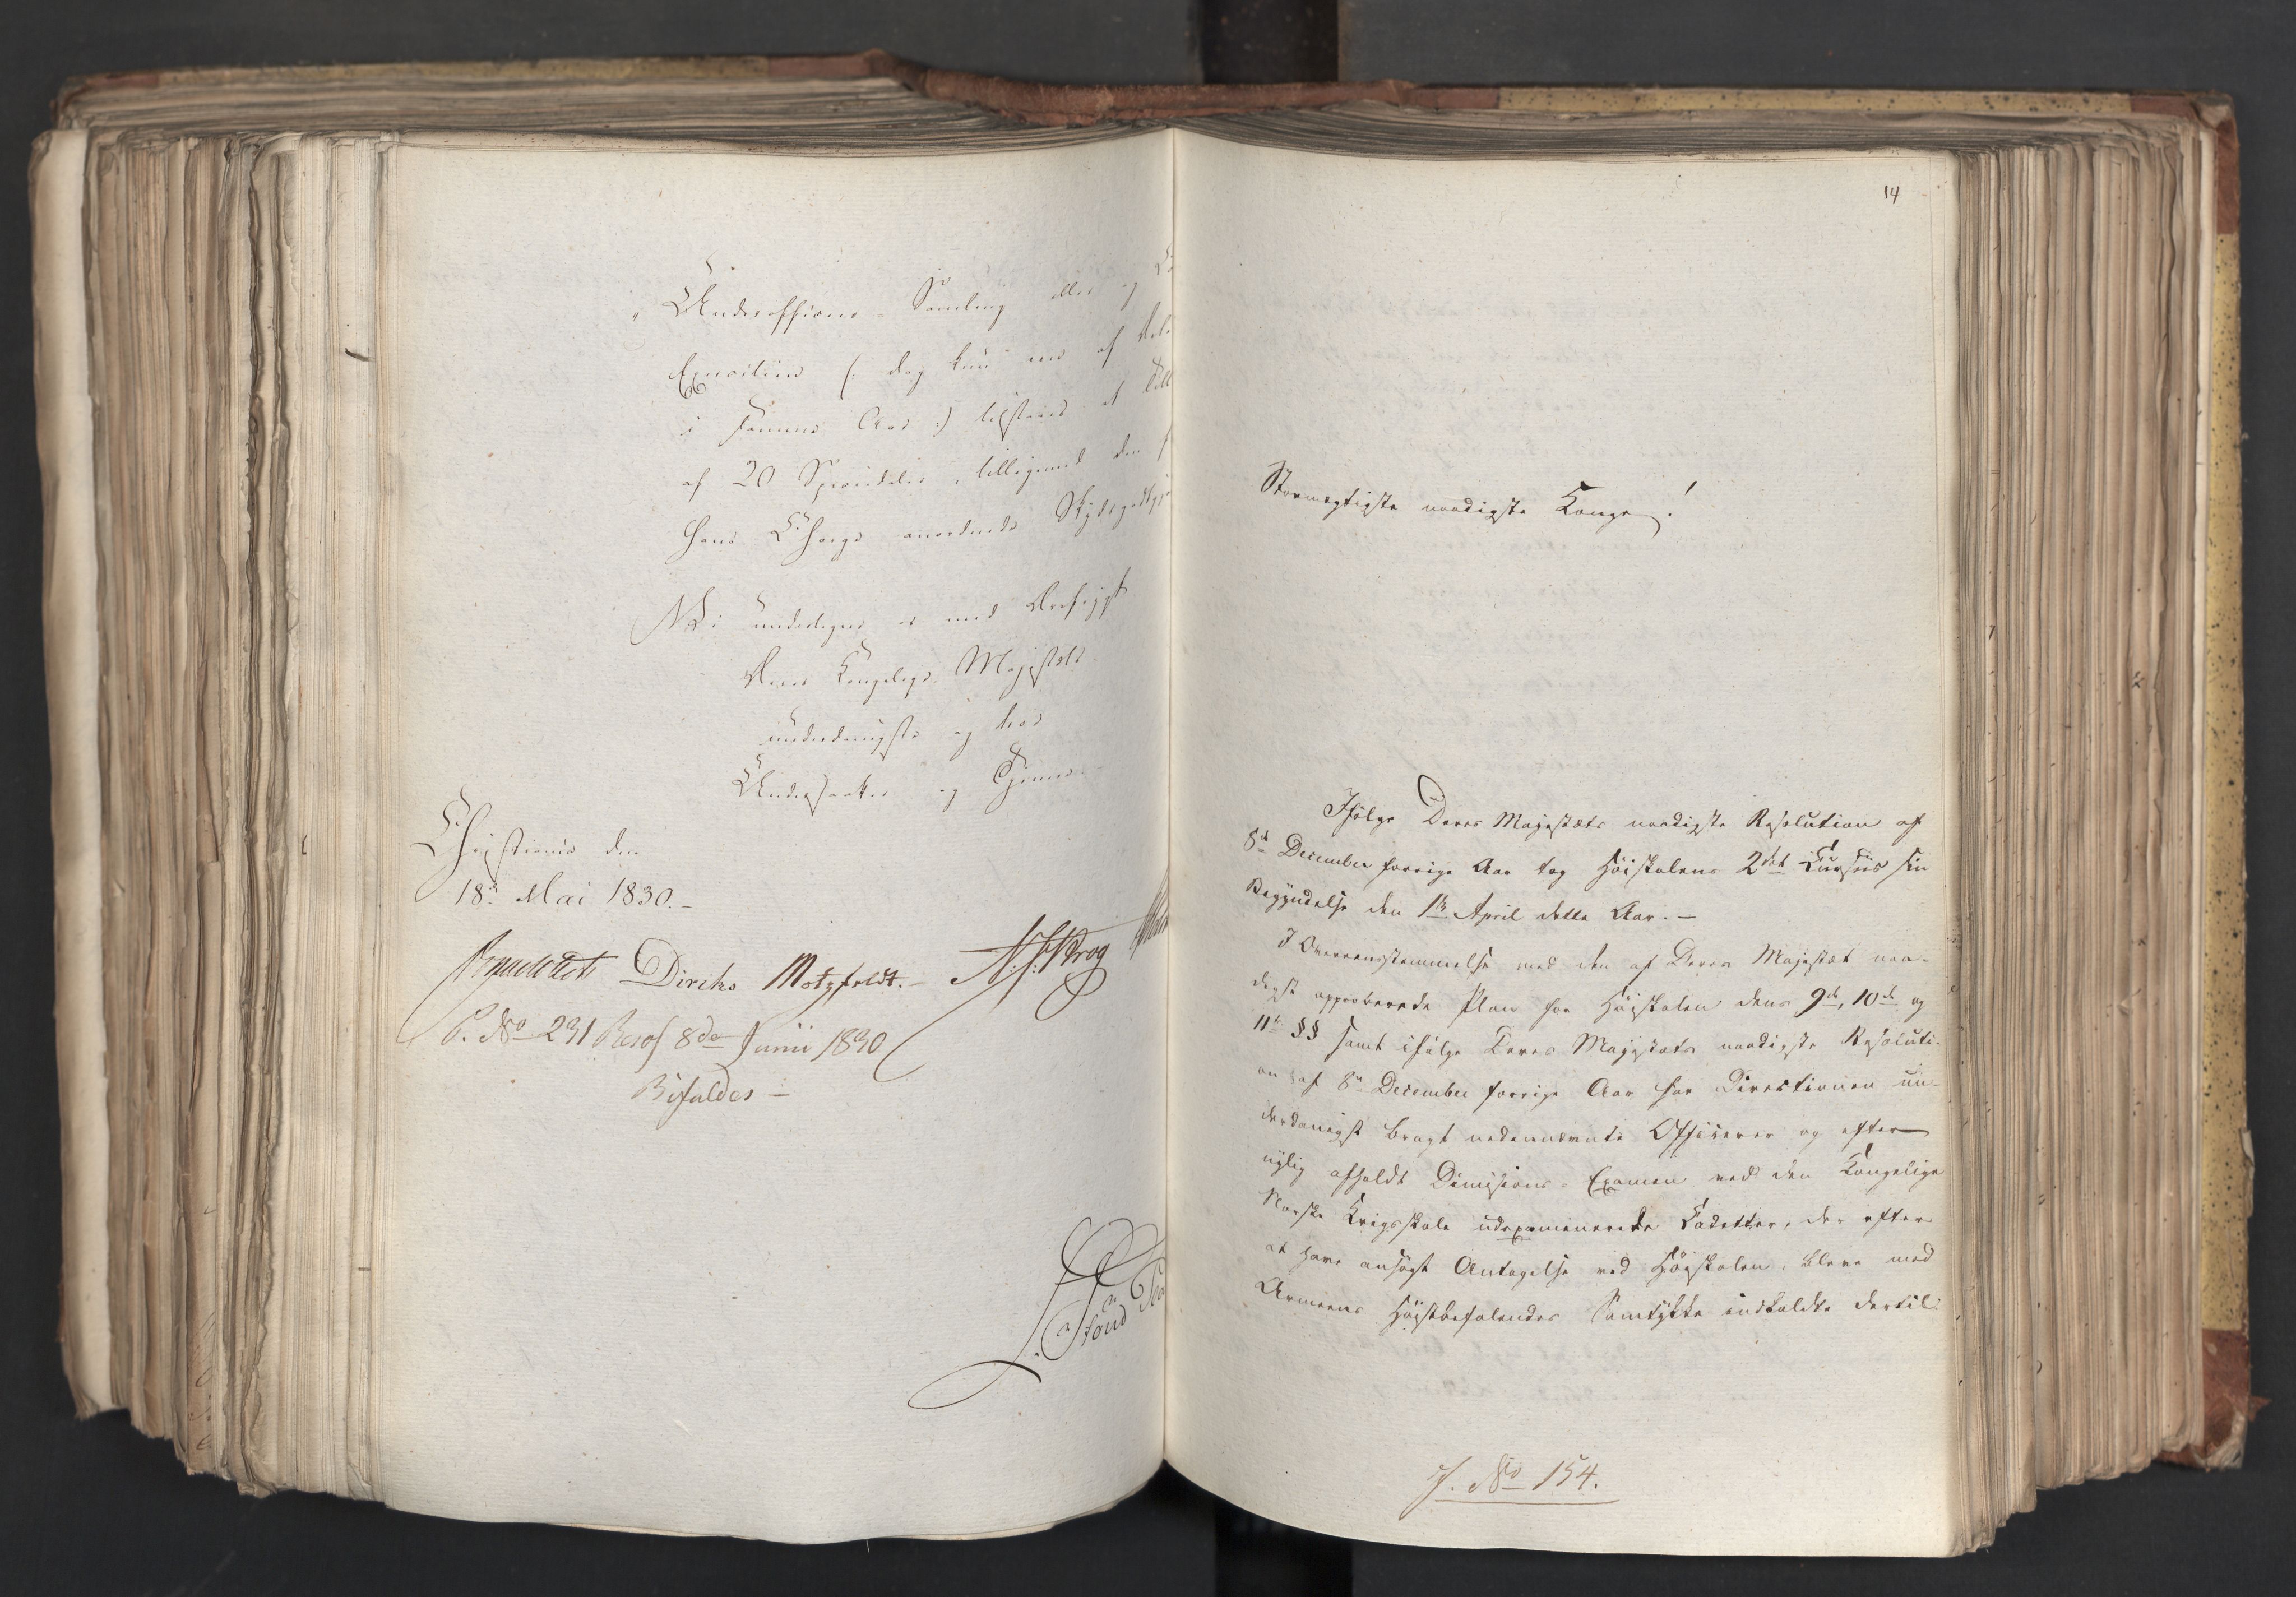 "Underofficers-Samling eller og
Exercitien (: dog kun een af
i samme Aar :) tilstaaes et
af 20 Speciedaler, tilligemed den
hans Charge anordnede Skydsgodtgj
Vi undertegne os med Ærefrygt
Deres Kongelige Majestæts
underdanigste og troe
Undersaatter og Tjenere
Christiania den
18de Mai 1830.-
Diriks Motzfeldt.- N. J. Krog
P. No 231 Resol 8de Junii 1830
Bifaldes -
14
Stormægtigste naadigste Konge!
Ifølge Deres Majestæts naadigste Resolution af
8de December forrige Aar tog Høiskolens 2det Cursus sin
Begyndelse den 1te April dette Aar.-
I Overeensstemmelse med den af Deres Majestæt naa-
digst approberede Plan for Høiskolen dens 9de, 10de og
11te §§ samt ifølge Deres Majestæts naadigste Resoluti-
on af 8de December forrige Aar har Directionen un-
derdanigst bragt nedennævnte Officerer og efter
nylig afholdt Dimissions-Examen ved den Kongelige
Norske Krigsskole udexaminerede Cadetter, der efter
at have ansøgt Antagelse ved Høiskolen, bleve med
Armeens Høistbefalendes Samtykke indkaldte dertil:
J. No 154.